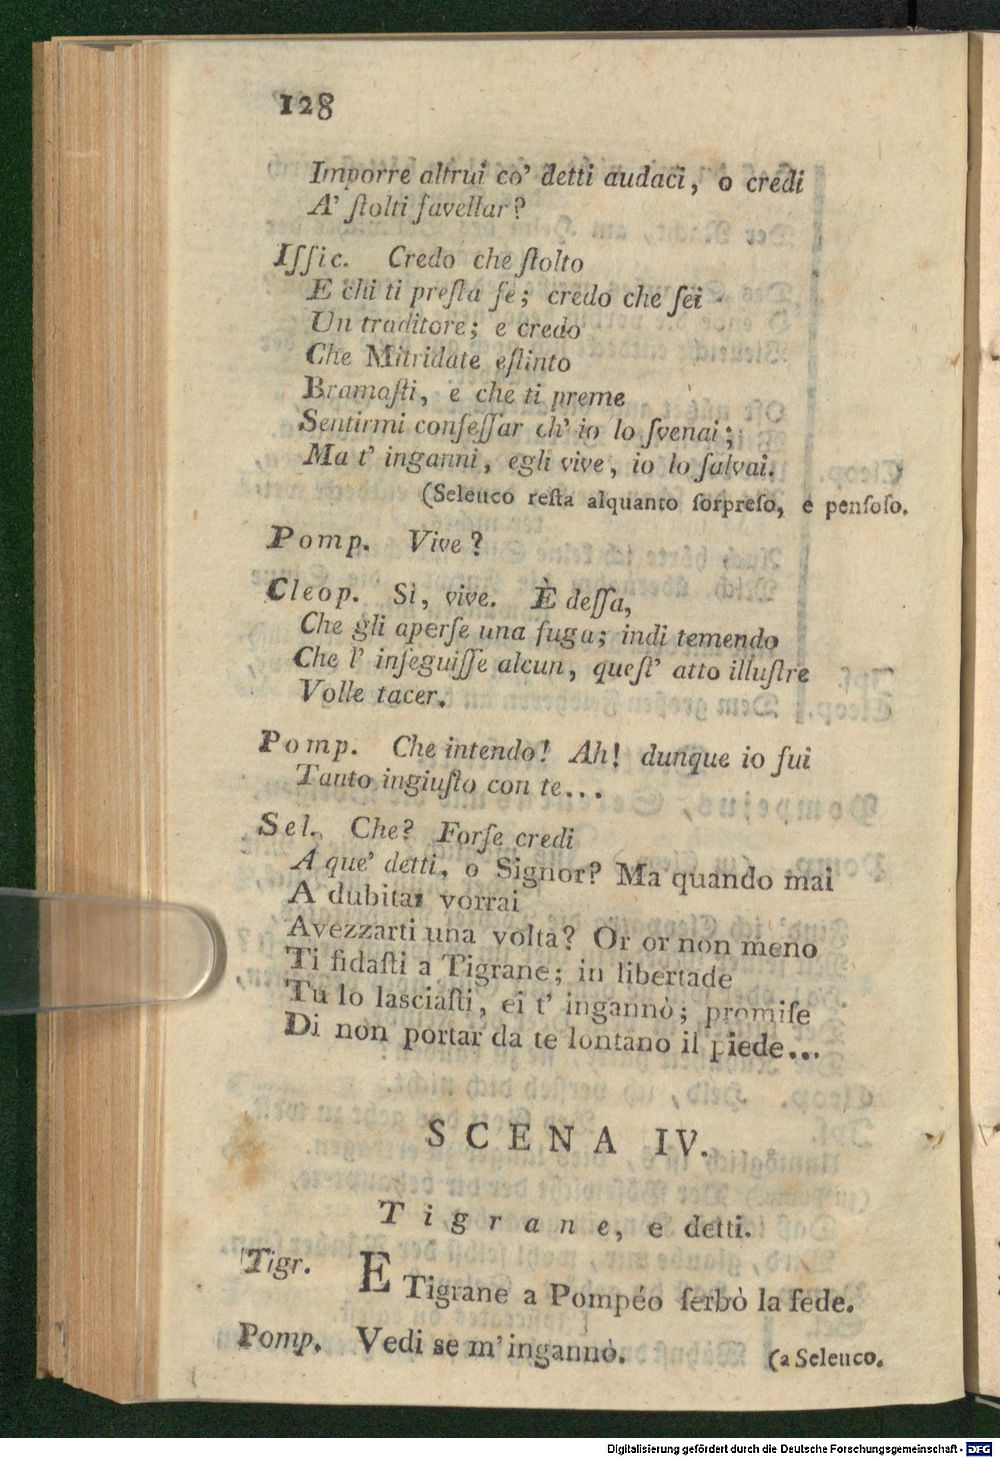 128
Imporre altrui co' detti audaci, o credi
A' ſtolti favellar?
Iſſic. Credo che ſtolto
E chi ti preſta fe; credo che ſei
Un traditore; e credo
Che Mitridate eſtinto
Bramaſti, e che ti preme
Sentirmi confeſſar ch' io lo ſvenai;
Ma t' inganni, egli vive, io lo ſalvai.
(Seleuco reſta alquanto ſorpreſo, e penſoſo.
Pomp. Vive?
Cleop. Sì, vive. È deſſa,
Che gli aperſe una fuga; indi temendo
Che l' inſeguiſſe alcun, queſt' atto illuſtre
Volle tacer.
Pomp. Che intendo! Ah! dunque io fui
Tanto ingiuſto con te...
Sel. Che? Forſe credi
A que' detti, o Signor? Ma quando mai
A dubitar vorrai
Avezzarti una volta? Or or non meno
Ti fidaſti a Tigrane; in libertade
Tu lo laſciaſti, ei t' ingannò; promiſe
Di non portar da te lontano il piede...
SCENA IV.
Tigrane, e detti.
Tigr. E Tigrane a Pompéo ſerbò la fede.
Pomp. Vedi se m'ingannò. (a Seleuco.
Digitalisierung gefördert durch die Deutsche Forschungsgemeinschaft - DFG